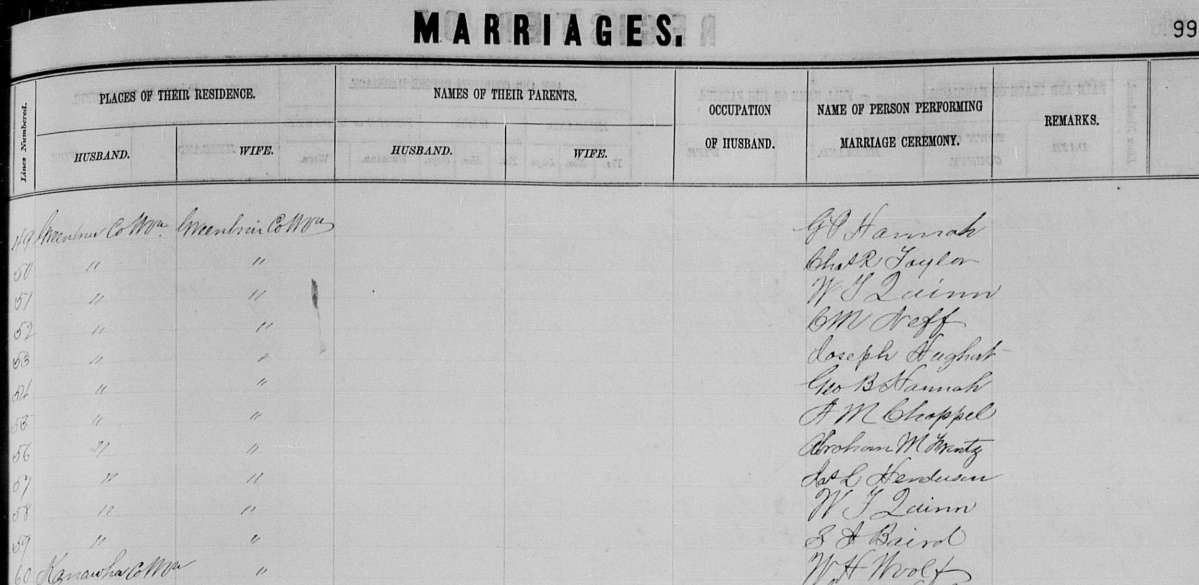 MARRIAGES.
99
Lines Numbered.
PLACES OF THEIR RESIDENCE.
NAMES OF THEIR PARENTS.
OCCUPATION OF HUSBAND.
NAME OF PERSON PERFORMING MARRIAGE CEREMONY.
REMARKS.
HUSBAND.
WIFE.
HUSBAND.
WIFE.
49 Greenbrier Co Wva Greenbrier Co Wva Hannah
50 " " Chas R Taylor
51 " " W T Quinn
52 " " C M Neff
53 " " Joseph
54 " " Geo B Hannah
55 " " A M Chappel
56 " " Abraham M
57 " " Jas L Henderson
58 " " W T Quinn
59 " " Baird
60 Kanawha Co Wva " W H Woolf